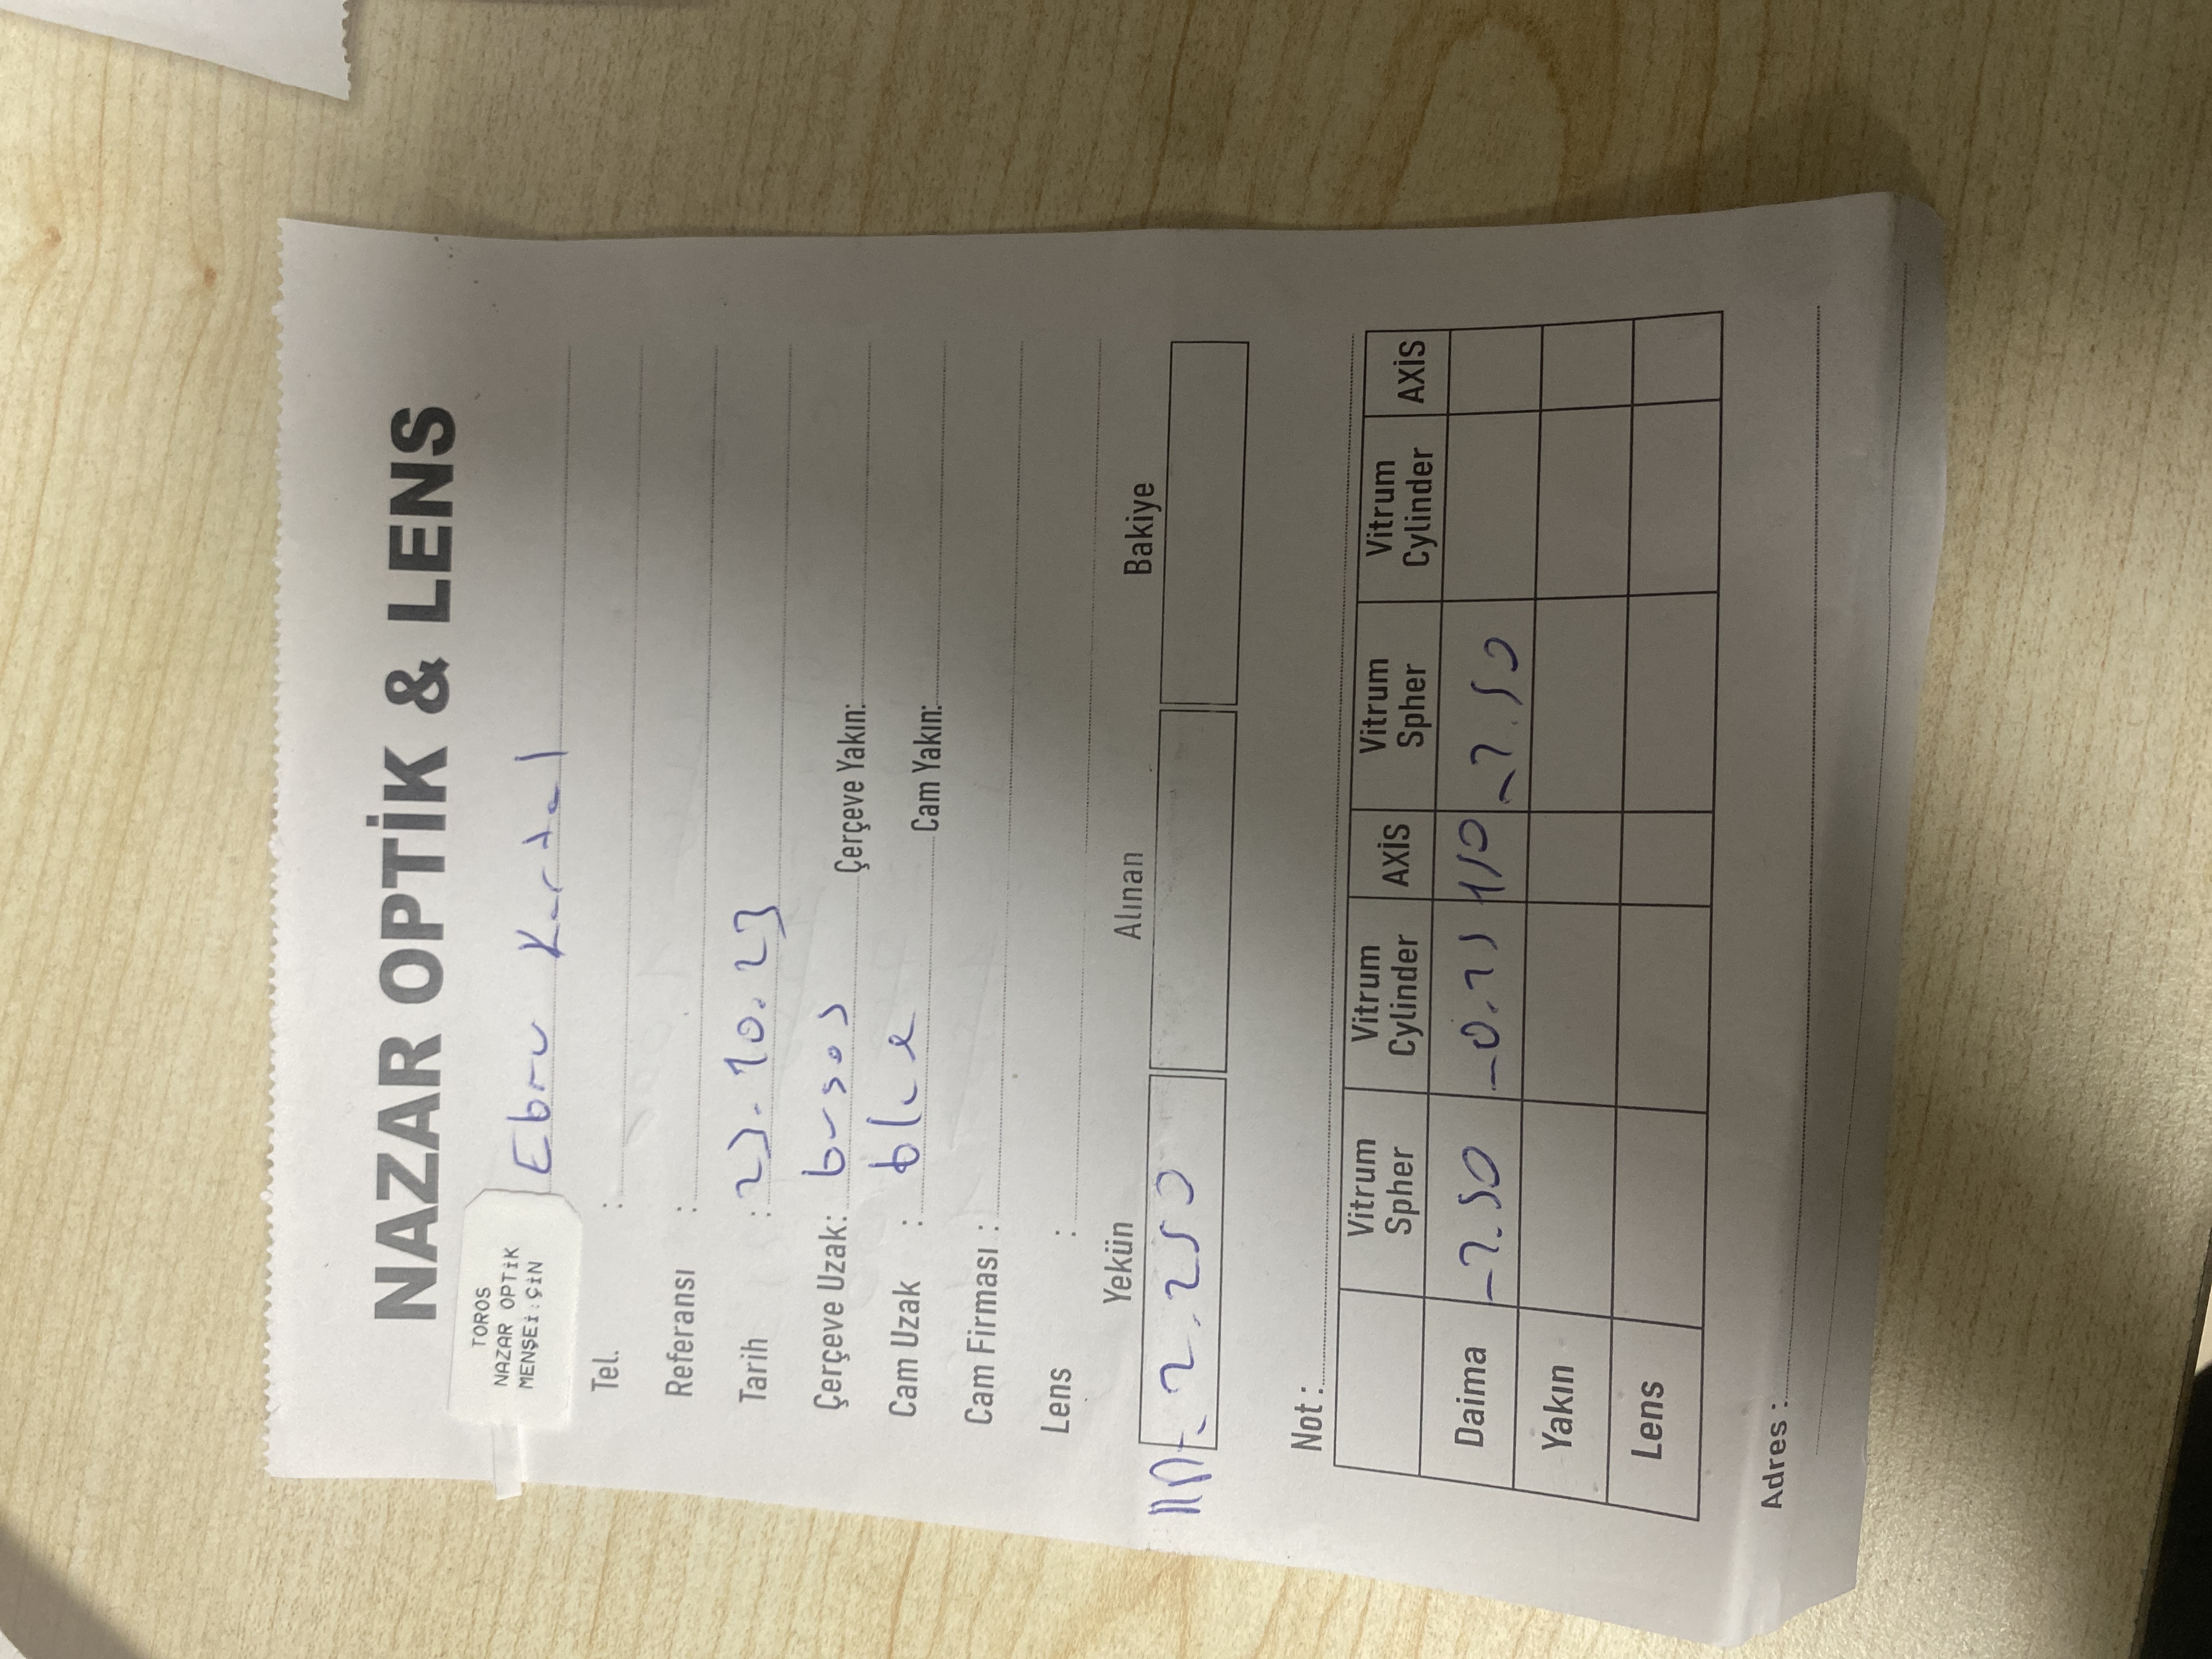 NAZAR OPTİK & LENS
TOROS
NAZAR OPTİK
MENŞEİ:ÇİN
Ebru Kartal
Tel. :
Referansı :
Tarih : 23.10.23
Çerçeve Uzak: Çerçeve Yakın:
Cam Uzak : blue Cam Yakın:
Cam Firması :
Lens :
Yekün Alınan Bakiye
2.250
Not :
Vitrum Spher Vitrum Cylinder AXİS Vitrum Spher Vitrum Cylinder AXİS
Daima
Yakın
Lens
Adres :